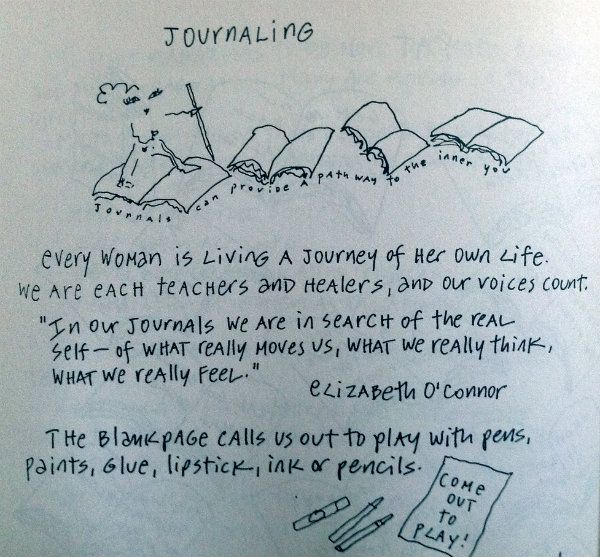 JOURNALING
Journals can provide a pathway to the inner you
every woman is Living a Journey of Her own Life.
We are each teachers and Healers, and our voices count.
"In our Journals we are in search of the real
Self— of what really moves us, what we really think,
what we really feel."
Elizabeth O'Connor
The Blank page calls us out to play with pens,
paints, glue, lipstick, ink or pencils.
COME
OUT
TO
PLAY!